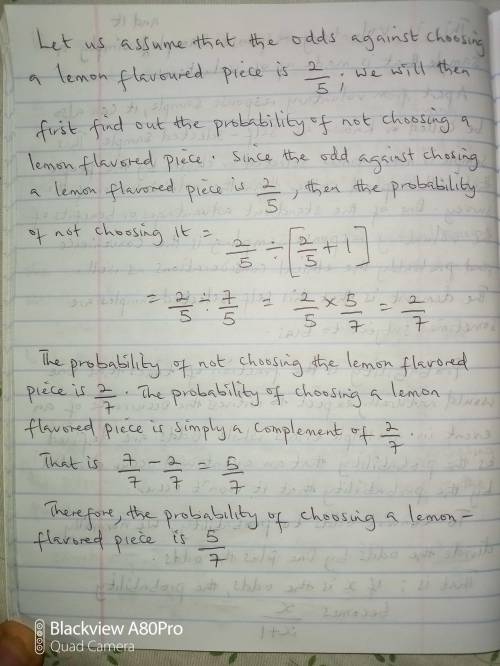 Let us assume that the odds against choosing
a lemon flavoured piece is 2/5; we will then
first find out the probability of not choosing a
lemon flavored piece. Since the odd against chosing
a lemon flavored piece is 2/5, then the probability
of not choosing it = 2/5 ÷ [2/5 + 1]
= 2/5 ÷ 7/5 = 2/5 × 5/7 = 2/7
The probability of not choosing the lemon flavored
piece is 2/7. The probability of choosing a lemon
flavored piece is simply a complement of 2/7.
That is 7/7 - 2/7 = 5/7
Therefore, the probability of choosing a lemon-
flavored piece is 5/7
Blackview A80Pro
Quad Camera